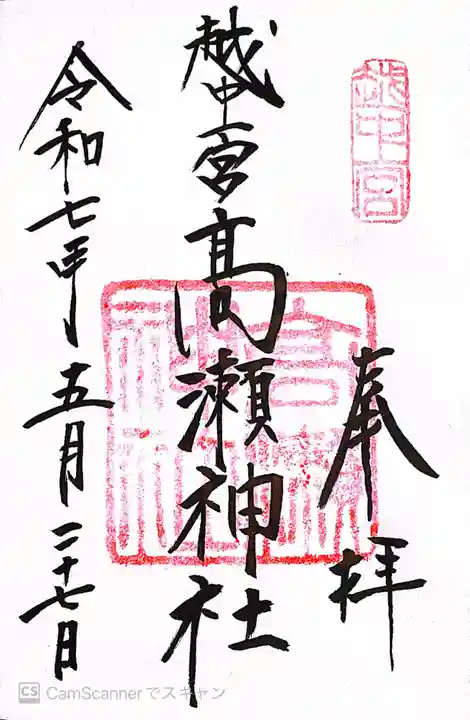 越中一宮
奉拝
越中一宮髙瀬神社
令和七年五月二十七日
CS CamScannerでスキャン